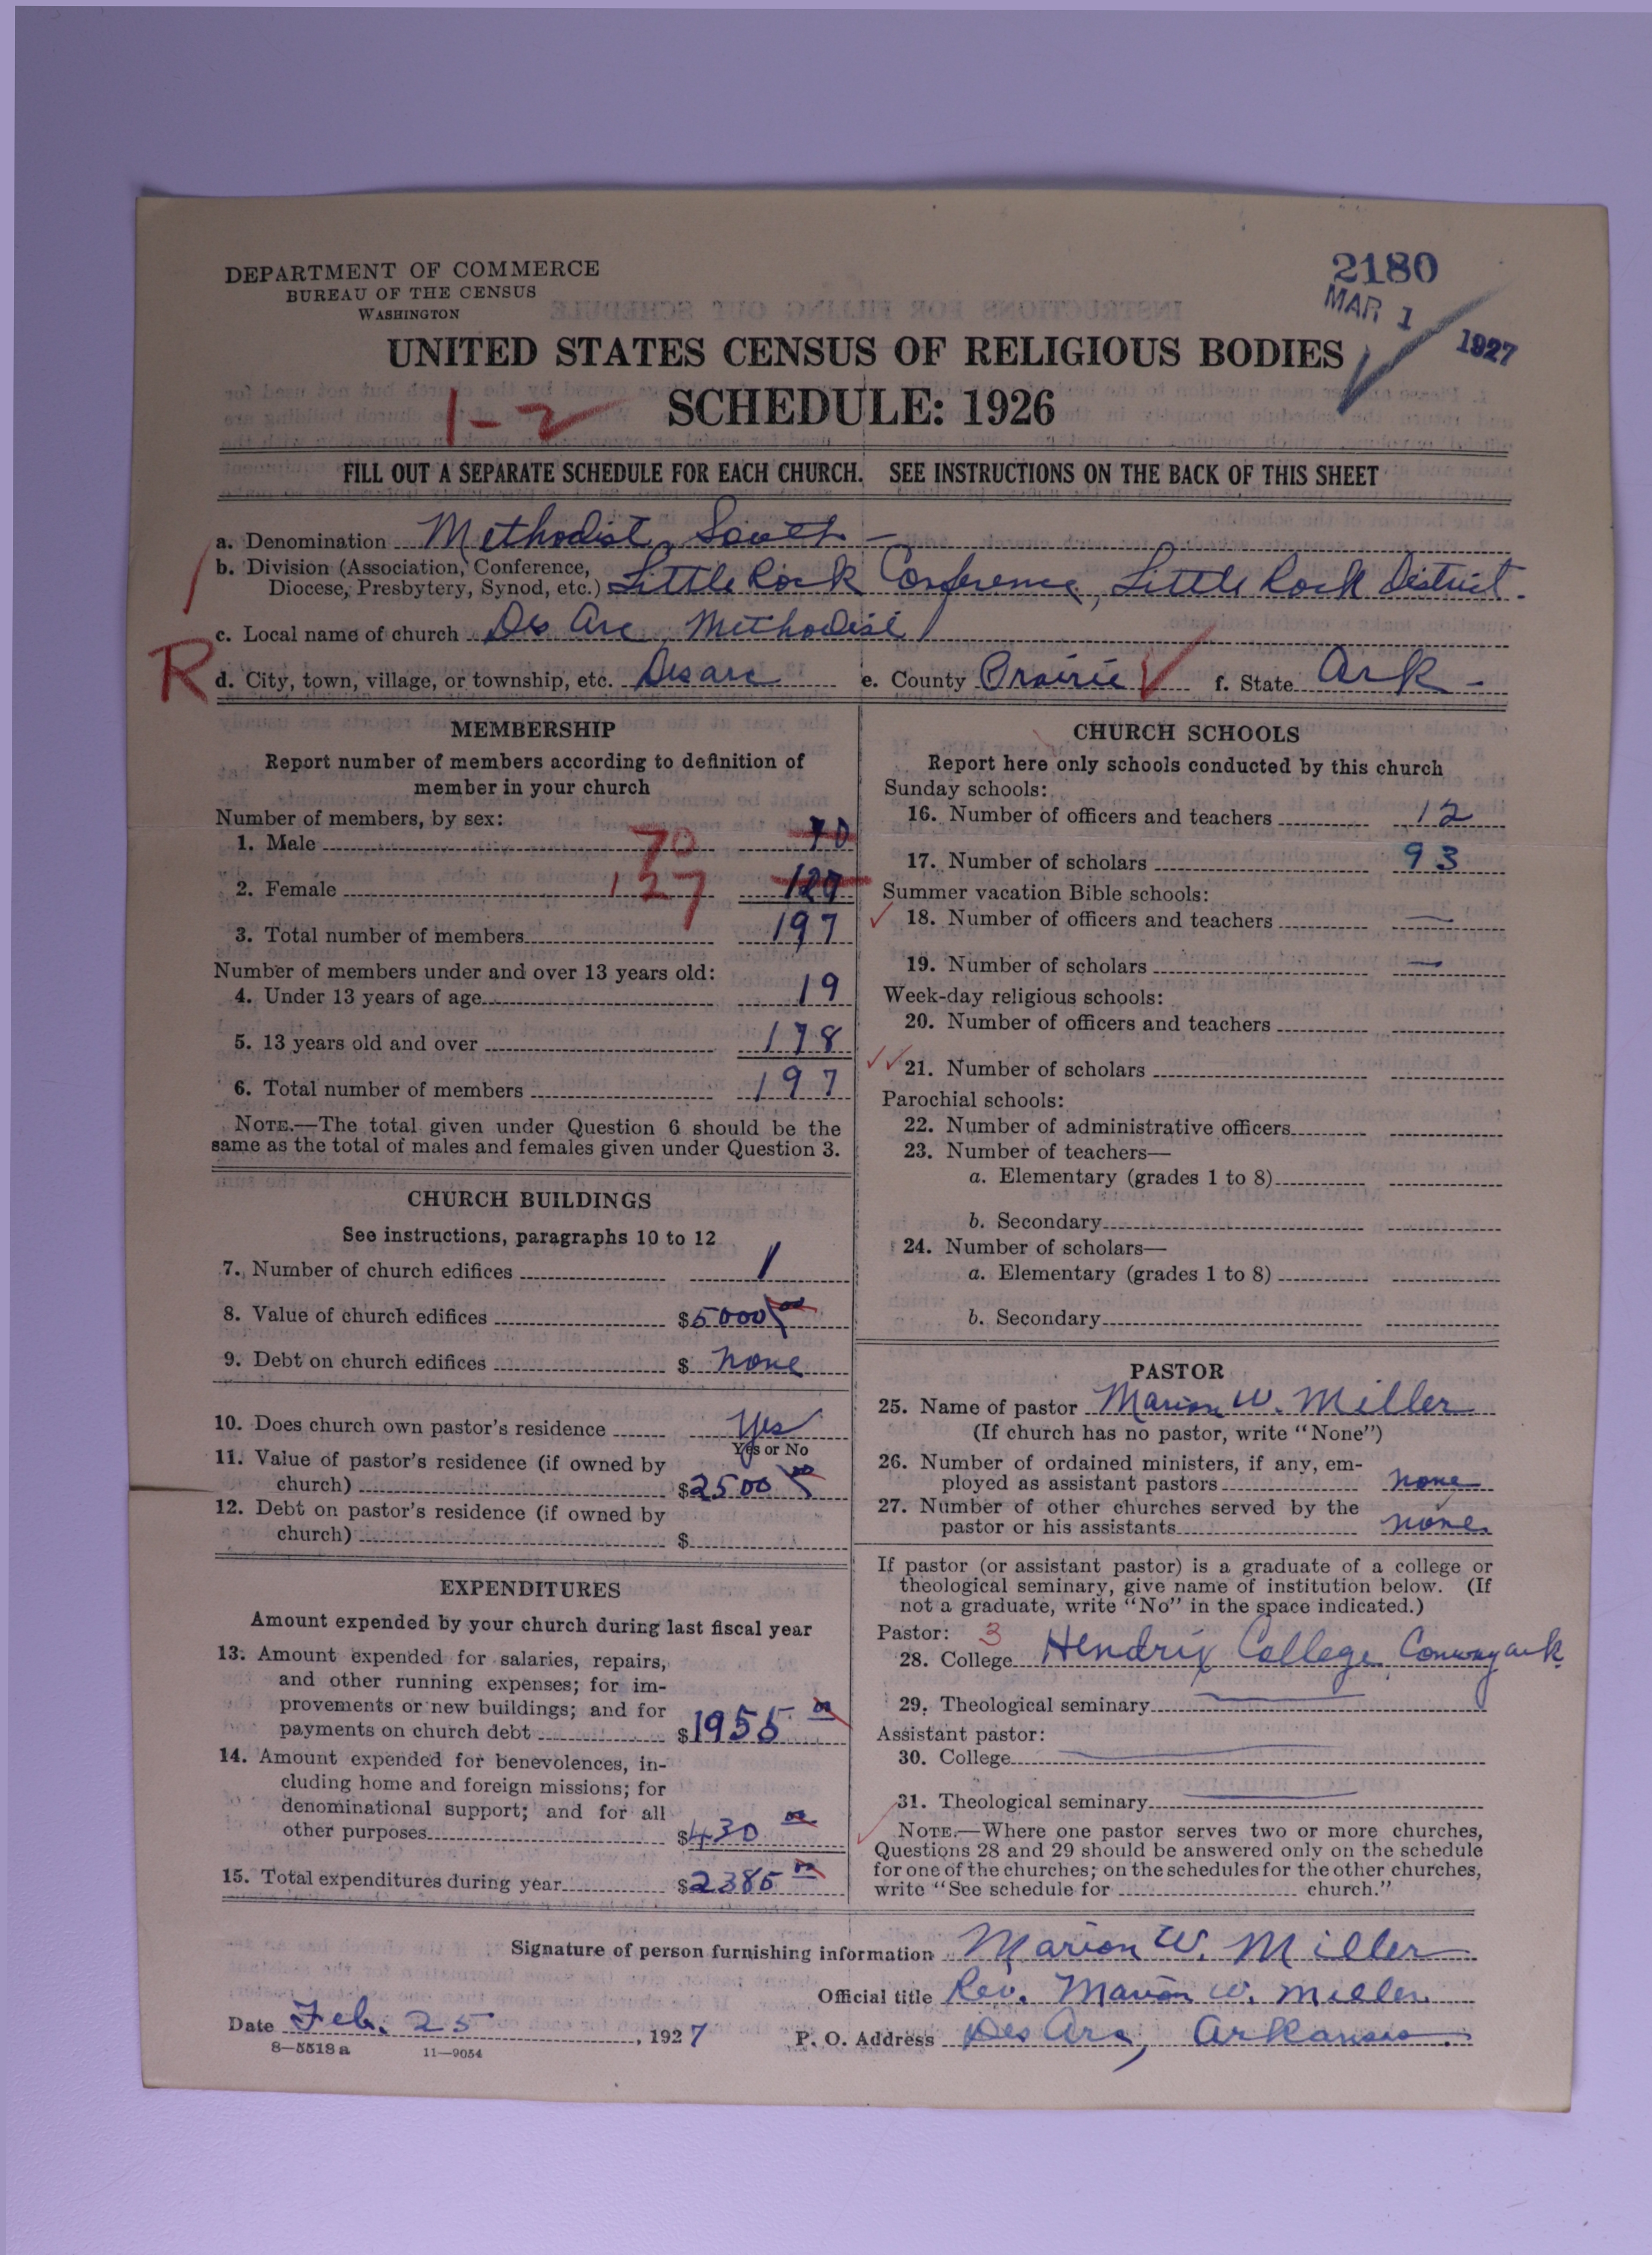 2180
MAR 1 1927
DEPARTMENT OF COMMERCE
BUREAU OF THE CENSUS
WASHINGTON
UNITED STATES CENSUS OF RELIGIOUS BODIES
1-2 SCHEDULE: 1926
FILL OUT A SEPARATE SCHEDULE FOR EACH CHURCH. SEE INSTRUCTIONS ON THE BACK OF THIS SHEET
a. Denomination Methodist, South -
b. Division (Association, Conference,
Diocese, Presbytery, Synod, etc.) Little Rock Conference, Little Rock District.
c. Local name of church Des Arc Methodist
R d. City, town, village, or township, etc. Des arc e. County Prairie f. State Ark -
MEMBERSHIP
Report number of members according to definition of
member in your church
Number of members, by sex:
1. Male 70 70
2. Female 127 127
3. Total number of members 197
Number of members under and over 13 years old:
4. Under 13 years of age 19
5. 13 years old and over 178
6. Total number of members 197
NOTE.—The total given under Question 6 should be the
same as the total of males and females given under Question 3.
CHURCH BUILDINGS
See instructions, paragraphs 10 to 12
7. Number of church edifices 1
8. Value of church edifices $5000 00
9. Debt on church edifices $ none
10. Does church own pastor's residence Yes
Yes or No
11. Value of pastor's residence (if owned by
church) $2500 00
12. Debt on pastor's residence (if owned by
church) $
EXPENDITURES
Amount expended by your church during last fiscal year
13. Amount expended for salaries, repairs,
and other running expenses; for im-
provements or new buildings; and for
payments on church debt $1955 00
14. Amount expended for benevolences, in-
cluding home and foreign missions; for
denominational support; and for all
other purposes $430 00
15. Total expenditures during year $2385 00
CHURCH SCHOOLS
Report here only schools conducted by this church
Sunday schools:
16. Number of officers and teachers 12
17. Number of scholars 93
Summer vacation Bible schools:
18. Number of officers and teachers —
19. Number of scholars —
Week-day religious schools:
20. Number of officers and teachers
21. Number of scholars
Parochial schools:
22. Number of administrative officers
23. Number of teachers—
a. Elementary (grades 1 to 8)
b. Secondary
24. Number of scholars—
a. Elementary (grades 1 to 8)
b. Secondary
PASTOR
25. Name of pastor Marion W. Miller
(If church has no pastor, write "None")
26. Number of ordained ministers, if any, em-
ployed as assistant pastors none
27. Number of other churches served by the
pastor or his assistants none.
If pastor (or assistant pastor) is a graduate of a college or
theological seminary, give name of institution below. (If
not a graduate, write "No" in the space indicated.)
Pastor: 3
28. College Hendrix College, Conway ark
29. Theological seminary
Assistant pastor:
30. College
31. Theological seminary
NOTE.—Where one pastor serves two or more churches,
Questions 28 and 29 should be answered only on the schedule
for one of the churches; on the schedules for the other churches,
write "See schedule for church."
Signature of person furnishing information Marion W. Miller
Official title Rev. Marion W. Miller.
Date Feb. 25, 1927 P. O. Address Des Arc, Arkansas.
8—5518a 11—9054